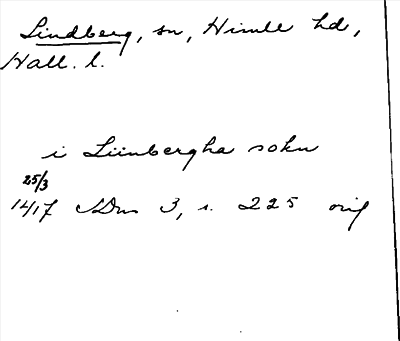 Lindberg, sn, Himle hd,
Hall. l.
i Liinbergha sokn
25/3
1417 ADns 3, s. 225 orig